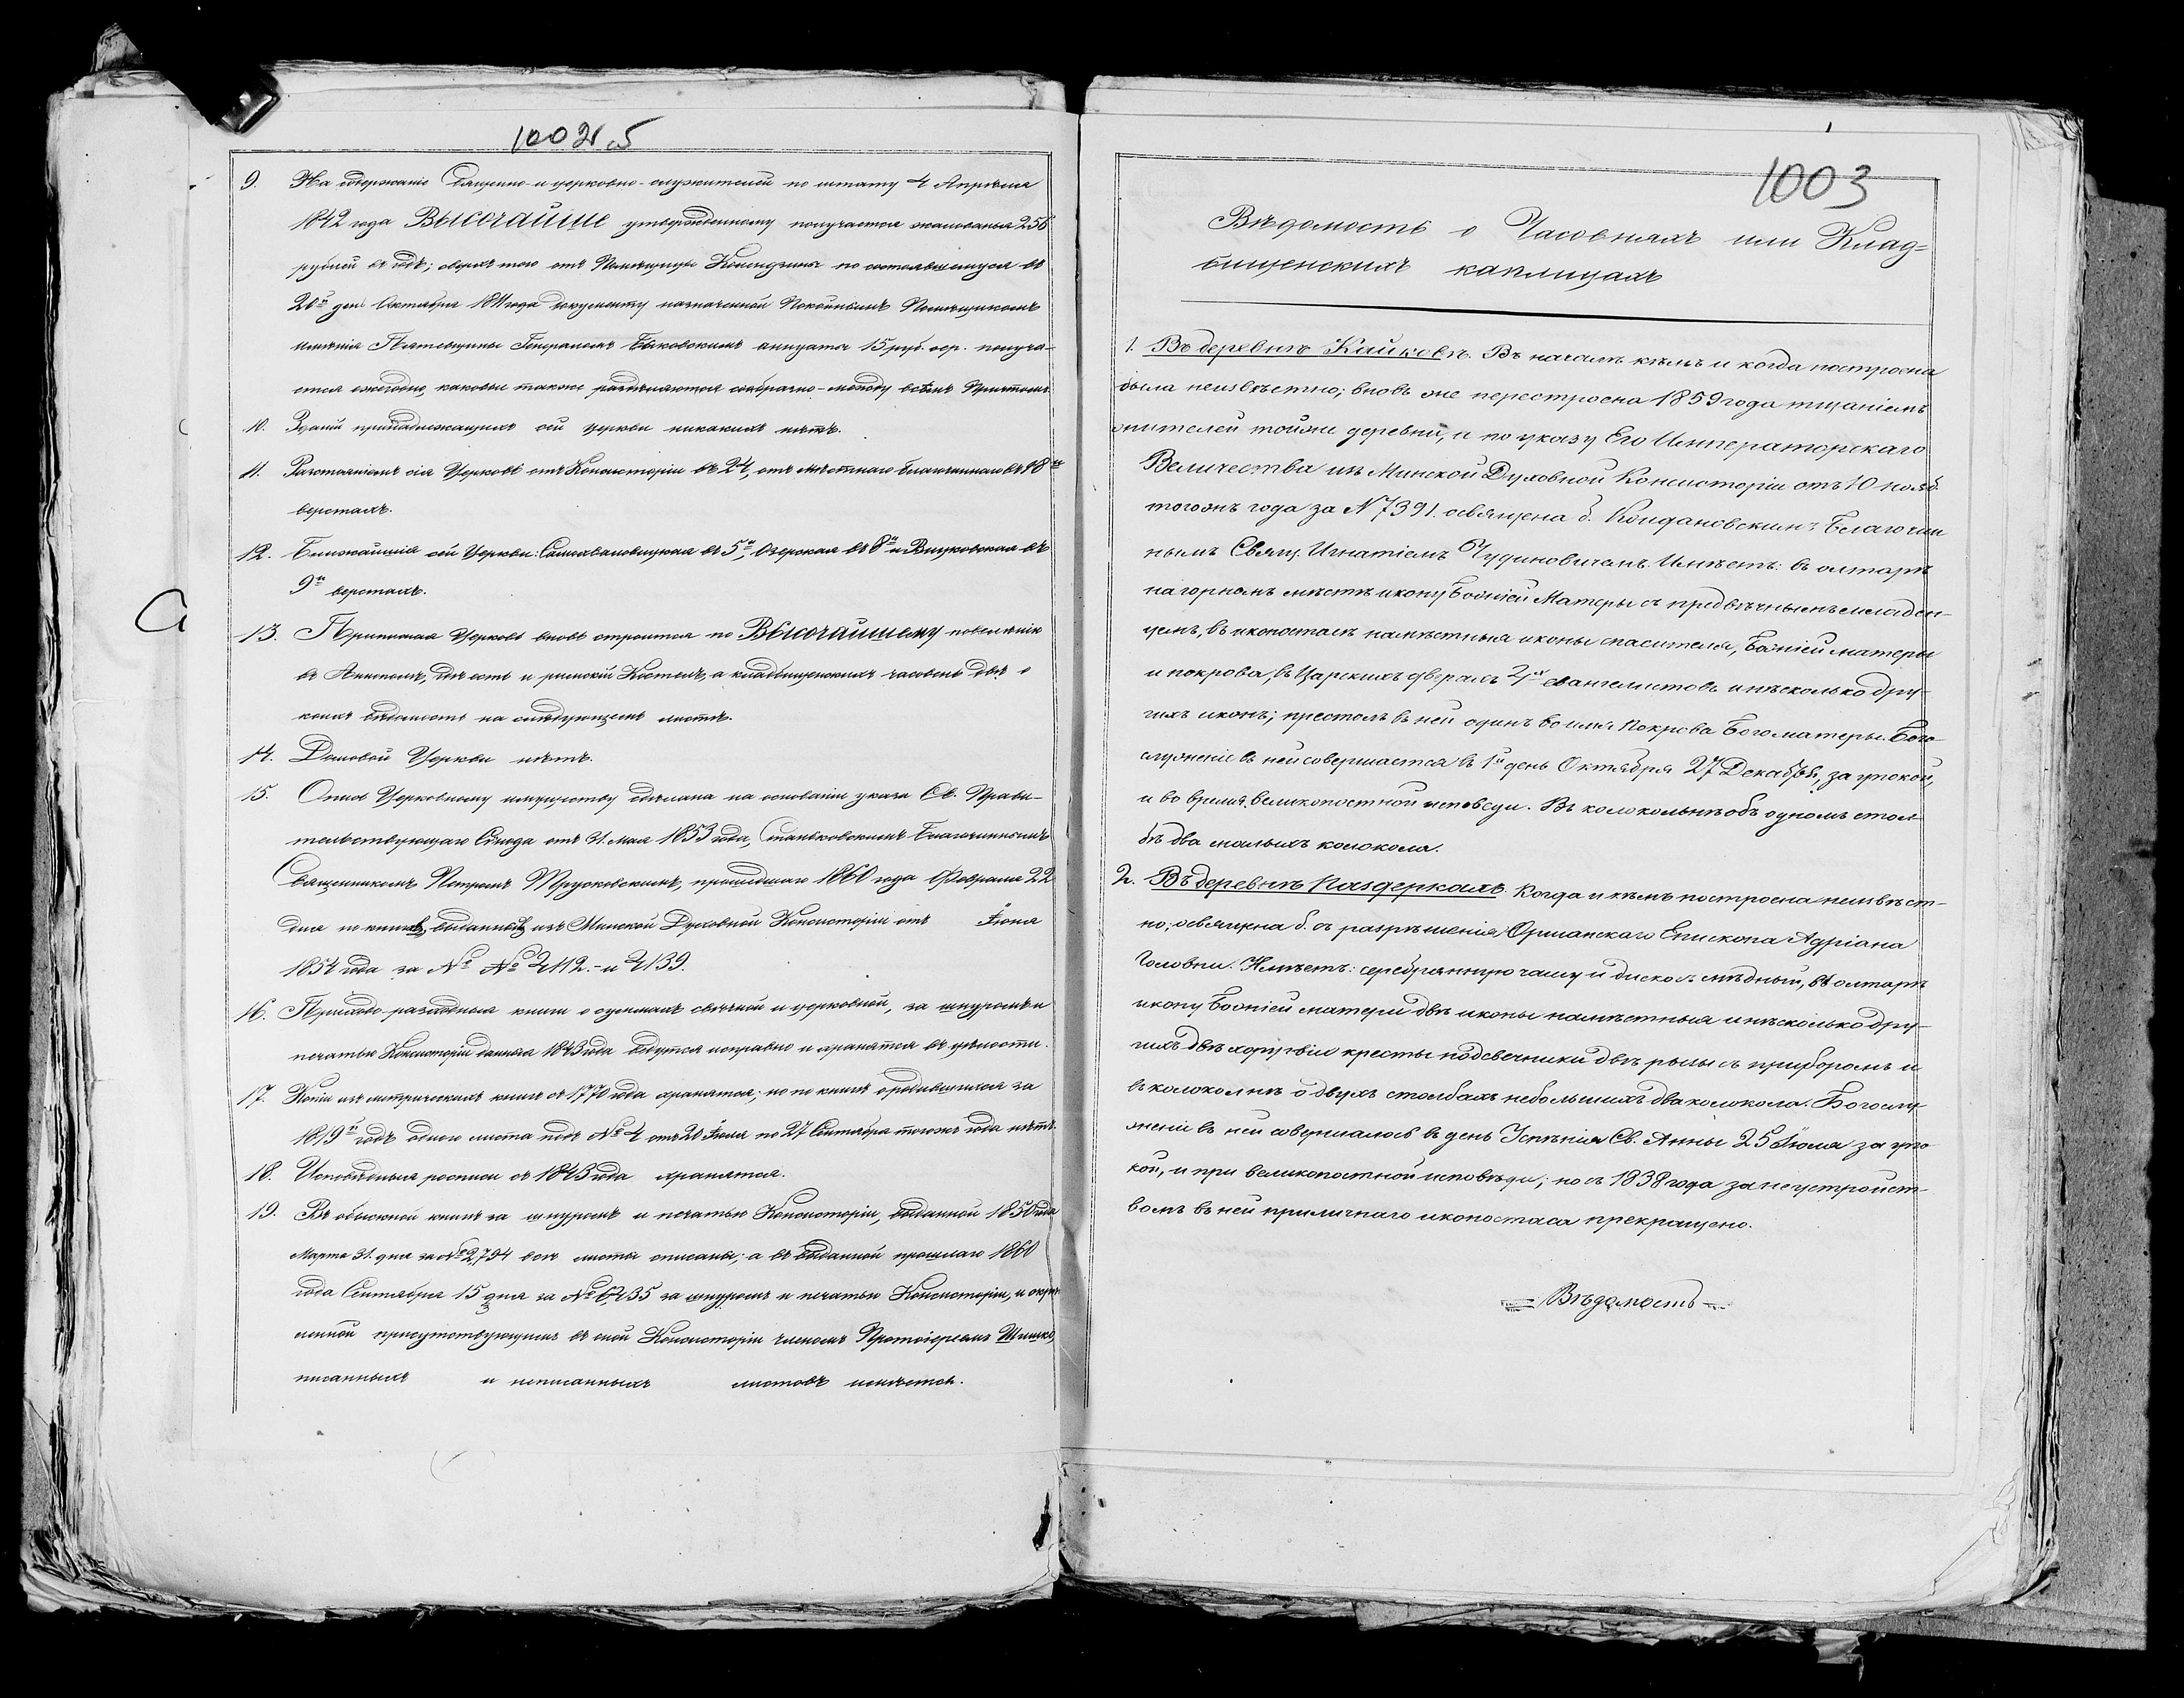 1002об
9. На содержаніе Священно- и церковно-служителей по штату 4 Апрѣля
1842 года Высочайше утвержденному получается жалованья 256
рублей въ годъ; сверхъ того отъ Помѣщицы по состоявшемуся въ
20й день Октября 1811 года документу назначенной Покойнымъ Помѣщикомъ
имѣнія Генераломъ Быковскимъ аннуата 15 руб. сер. получа-
ется ежегодно, каковы также раздѣляются сообразно-между всѣмъ Причтомъ.
10. Зданій принадлежащихъ сей церкви никакихъ нѣтъ.
11. Разстояніемъ сія Церковь отъ Консисторіи въ 24, отъ мѣстнаго благочиннаго въ 18ти
верстахъ.
12. Ближайшія сей Церкви: въ 5и, Озерская въ 8и и въ
9и верстахъ.
13. Приписная Церковь вновь строится по Высочайшему повелѣнію
въ Аннополѣ, гдѣ есть и римскій Костелъ, а кладбищенскихъ часовень двѣ о
коихъ вѣдомость на слѣдующемъ листѣ.
14. Домовой Церкви нѣтъ.
15. Опись Церковному имуществу сдѣлана на основаніи указа Св. Прави-
тельствующаго Сѵнода отъ 31. мая 1853 года, Станьковскимъ Благочиннымъ
Священникомъ Петромъ Трусковскимъ, прошедшаго 1860 года Февраля 22
дня по книгѣ, выданной изъ Минской Духовной Консисторіи отъ Іюня
1854 года за №№ 4112.-и 4139.
16. Приходо-расходныя книги о суммахъ свѣчной и церковной, за шнуромъ и
печатью Консисторіи даныя 1843 года ведутся исправно и хранятся въ цѣлости.
17. Копіи изъ метрическихъ книгъ съ 1770 года хранятся; но по книгѣ о родившихся за
1819й годъ одного листа подъ № 4 отъ 20 Іюля по 27 Сентября тогожъ года нѣтъ.
18. Исповѣдныя росписи съ 1843 года хранятся.
19. Въ обыскной книгѣ за шнуромъ и печатью Консисторіи, выданной 1850 года
Марта 31. дня за № 2,794 всѣ листы описаны; а въ выданной прошлаго 1860
года Сентября 15 дня за № 6435 за шнуромъ и печатью Консисторіи, и скрѣп-
ленной присутствующимъ въ оной Консисторіи членомъ Протоіереемъ
писанныхъ и неписанныхъ листовъ имѣется.
1003
Вѣдомость о Часовняхъ или Клад-
бищенскихъ каплицахъ
1. Въ деревнѣ Кайковѣ. Въ началѣ кѣмъ и когда построена
была неизвѣстно; вновь же перестроена 1859 года тщаніемъ
жителей тойже деревни, и по указу Его Императорскаго
Величества изъ Минской Духовной Консисторіи отъ 10 нояб.
тогожъ года за N 7391. освящена б. Койдановскимъ Благочин
нымъ Свящ. Игнатіемъ Чудиновичемъ. Имѣетъ: въ олтарѣ
на горномъ мѣстѣ икону Божіей Матеры съ предвѣчнымъ младен-
цемъ, въ иконостасѣ намѣстныя иконы спасителя, Божіей матеры
и покрова, въ Царскихъ дверахъ 4х евангелистовъ и нѣсколько дру-
гихъ иконъ; престолъ въ ней одинъ во имя Покрова Богоматеры. Бого-
служеніе въ ней совершается въ 1й день Октября 27 Декабря, за упокой,
и во время великопостной исповеди. Въ колокольнѣ объ одномъ стол-
бѣ два малыхъ колокола.
2. Въ деревнѣ Наздеркахъ. Когда и кѣмъ построена неизвѣст-
но; освящена б. съ разрѣшенія Оршанскаго Епископа Адріана
Головни. Имѣетъ: серебрянную чашу и дискосъ мѣдный, въ олтарѣ
икону Божіей матери двѣ иконы намѣстныя и нѣсколько дру-
гихъ двѣ хоругвіи кресты подсвечники двѣ ризы съ приборомъ и
въ колоколнѣ о двухъ столбахъ небольшихъ два колокола. Богослу-
женіе въ ней совершалось въ день Успѣнія Св. Анны 25 Іюля за упо
кой, и при великопостной исповѣди; но съ 1838 года за неустройст-
вомъ въ ней приличнаго иконостаса прекращено.
Вѣдомость